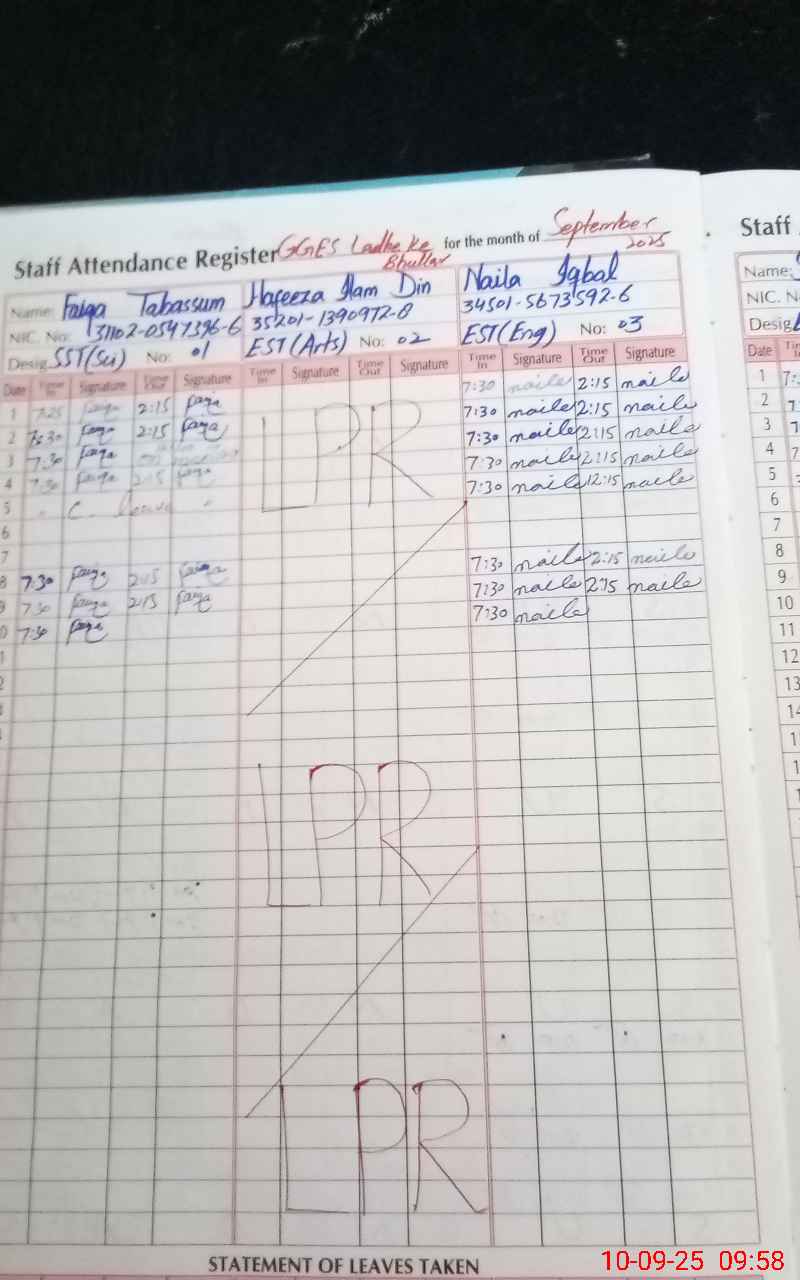 Staff Attendance Register GGES Ladhe ke Bhullar for the month of September 2025
Staff
Name: Faiqa Tabassum Hafeeza Ilam Din Naila Iqbal
Name:
NIC. No: 31102-0547396-6 35201-1390972-8 34501-5673592-6
NIC. N
Desig. SST(Sci) No: 01 EST(Arts) No: 02 EST(Eng) No: 03
Desig
Date Time In Signature Signature Time In Signature Time Out Signature Time In Signature Time Out Signature
Date
1 7:25 faiqa 2:15 faiqa 7:30 naila 2:15 naila
2 7:30 faiqa 2:15 faiqa 7:30 naila 2:15 naila
3 7:30 faiqa 7:30 naila 2:15 naila
4 7:30 faiqa 2:15 faiqa 7:30 naila 2:15 naila
5 " C. leave " 7:30 naila 2:15 naila
6
7
8 7:30 faiqa 2:15 faiqa 7:30 naila 2:15 naila
9 7:30 faiqa 2:15 faiqa 7:30 naila 2:15 naila
10 7:30 faiqa 7:30 naila
LPR
LPR
LPR
1
2
3
4
5
6
7
8
9
10
11
12
13
14
STATEMENT OF LEAVES TAKEN
10-09-25 09:58